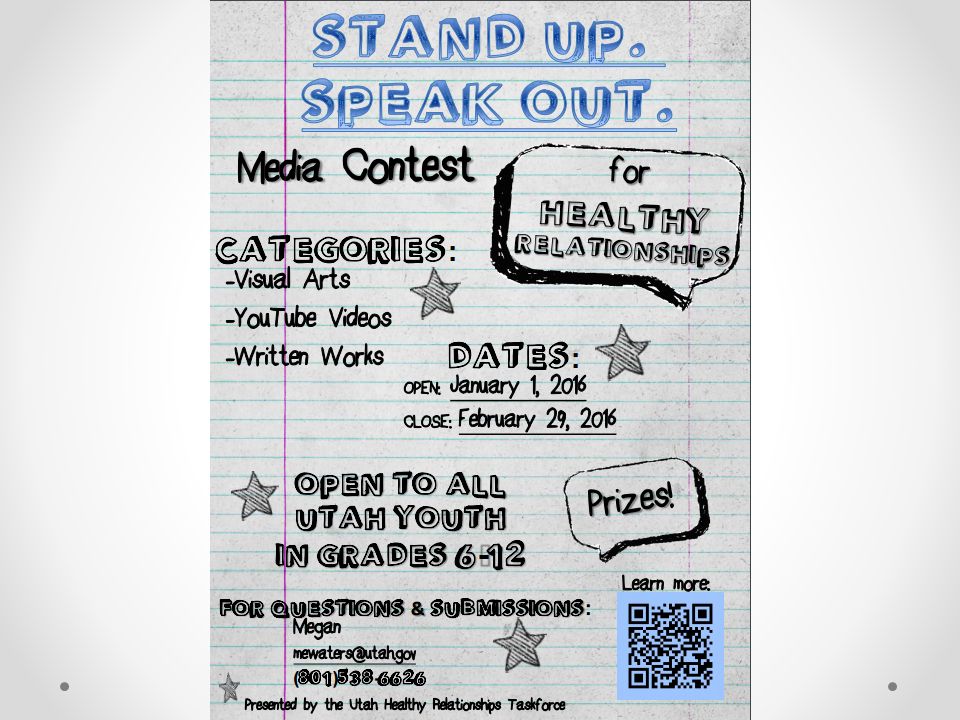 STAND UP.
SPEAK OUT.
Media Contest
for
HEALTHY
RELATIONSHIPS
CATEGORIES:
-Visual Arts
-YouTube Videos
-Written Works
DATES:
OPEN: January 1, 2016
CLOSE: February 29, 2016
OPEN TO ALL
UTAH YOUTH
IN GRADES 6-12
Prizes!
Learn more:
FOR QUESTIONS & SUBMISSIONS:
Megan
mewaters@utah.gov
(801)538-6626
Presented by the Utah Healthy Relationships Taskforce